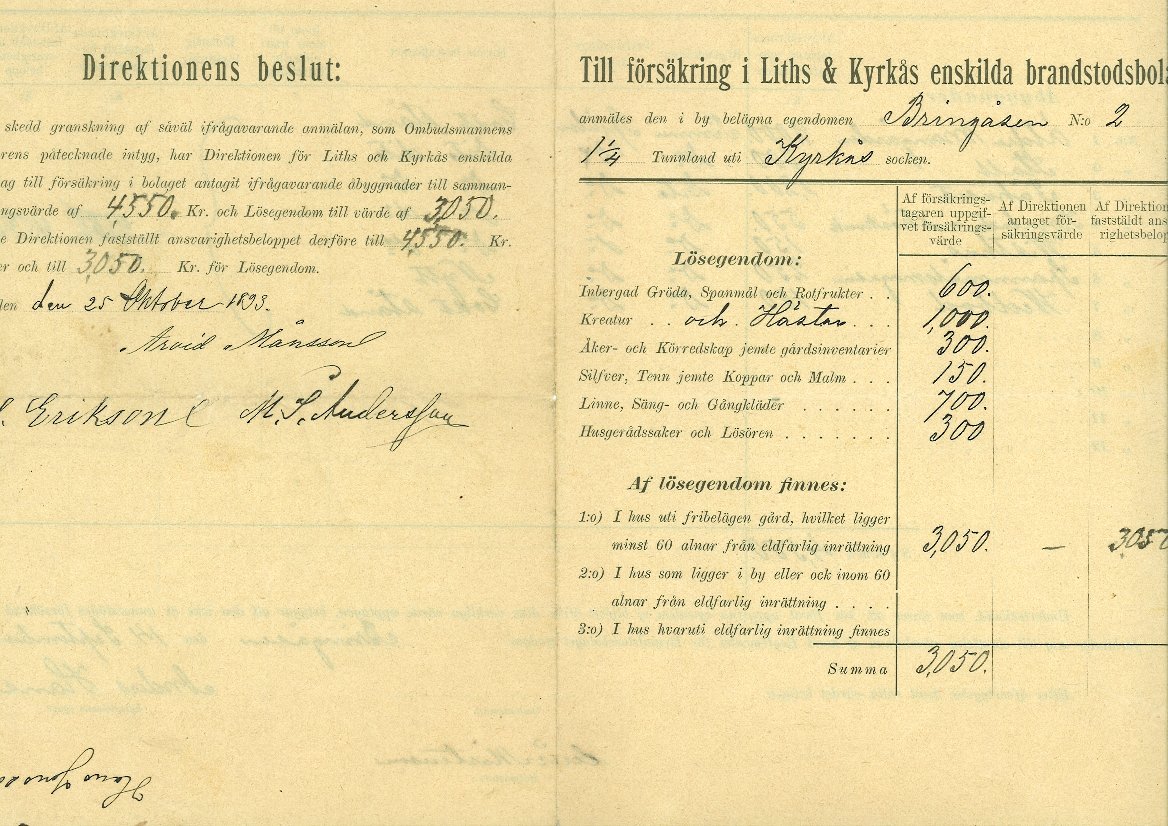 Direktionens beslut:
skedd granskning af såväl ifrågavarande anmälan, som Ombudsmannens
rens påtecknade intyg, har Direktionen för Liths och Kyrkås enskilda
ag till försäkring i bolaget antagit ifrågavarande åbyggnader till samman-
ngsvärde af 4,550. Kr. och Lösegendom till värde af 3,050.
e Direktionen fastställt ansvarighetsbeloppet derföre till 4,550. Kr.
er och till 3,050. Kr. för Lösegendom.
den den 25 Oktober 1893.
Arvid Månsson
Erikson M. S. Andersson
Hans
Till försäkring i Liths & Kyrkås enskilda brandstodsbola
anmäles den i by belägna egendomen Bringåsen N:o 2
1 1/4 Tunnland uti Kyrkås socken.
Af försäkrings-tagaren uppgif-vet försäkrings-värde
Af Direktionen antaget för-säkringsvärde
Af Direktion fastställdt ans-righetsbelopp
Lösegendom:
Inbergad Gröda, Spanmål och Rotfrukter . . 600.
Kreatur . . och Hästar . . . 1,000.
Åker- och Körredskap jemte gårdsinventarier 300.
Silfver, Tenn jemte Koppar och Malm . . . 150.
Linne, Säng- och Gångkläder . . . . . . 700.
Husgerådssaker och Lösören . . . . . . . 300
Af lösegendom finnes:
1:o) I hus uti fribelägen gård, hvilket ligger
minst 60 alnar från eldfarlig inrättning 3,050. — 3,050
2:o) I hus som ligger i by eller ock inom 60
alnar från eldfarlig inrättning . . . .
3:o) I hus hvaruti eldfarlig inrättning finnes
Summa 3,050.